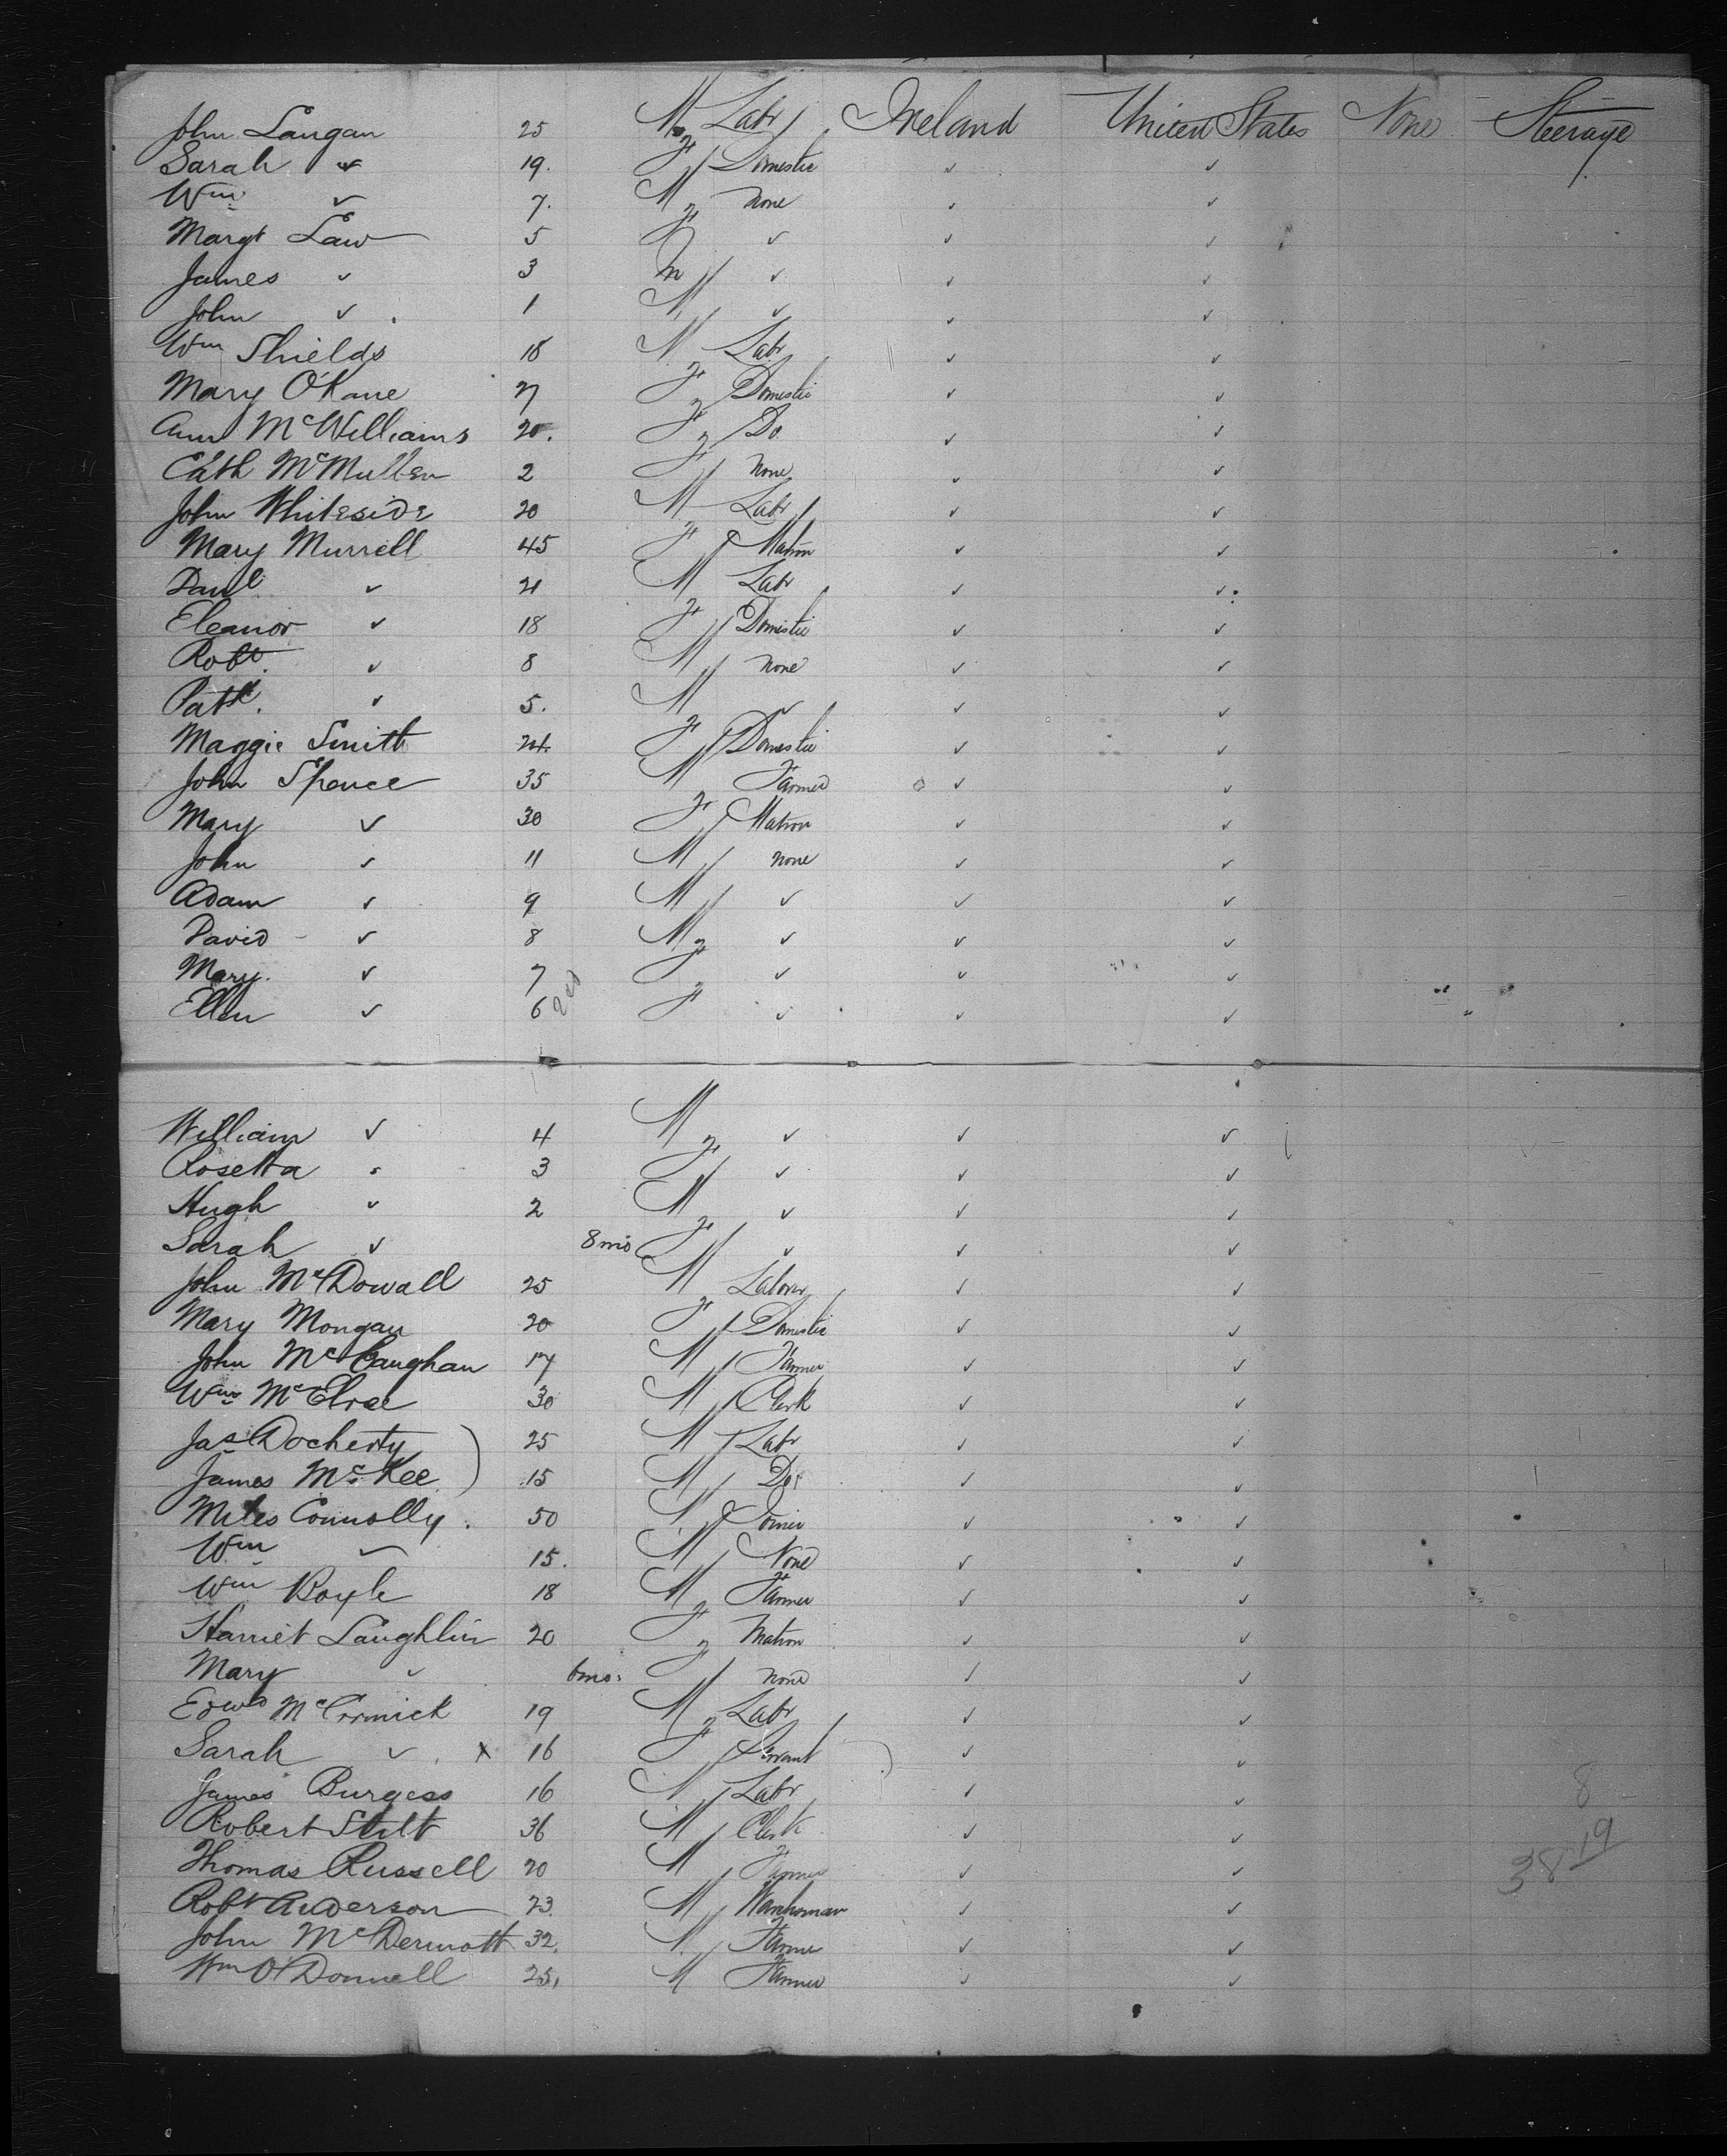 John Langan 25 M Labr Ireland United States None Steerage
Sarah " 19. F Domestic " "
Wm " 7. M None " "
Margt Law 5 F " " "
James " 3 M " " "
John " 1 M " " "
Wm Shields 18 M Labr " "
Mary O'Kane 27 F Domestic " "
Ann McWilliams 20. F Do " "
Cath McMullen 2 F None " "
John Whiteside 20 M Labr " "
Mary Murrell 45 F Matron " "
Danl " 21 M Labr " "
Eleanor " 18 F Domestic " "
Robt. " 8 M None " "
Patk. " 5. M " " "
Maggie Smith 24 F Domestic " "
John Spence 35 M Farmer " "
Mary " 30 F Matron " "
John " 11 M None " "
Adam " 9 M " " "
David " 8 M " " "
Mary " 7 F " " "
Ellen " 6 F " " "
William " 4 M " " "
Rosetta " 3 F " " "
Hugh " 2 M " " "
Sarah " 8 mo F " " "
John McDowall 25 M Laborer " "
Mary Mongan 20 F Domestic " "
John McCaughan 17 M Farmer " "
Wm McElroe 30 M Clerk " "
Jas Docherty 25 M Labr " "
James McKee 15 M Do " "
Miles Connolly. 50 M Joiner " "
Wm " 15. M None " "
Wm Boyle 18 M Farmer " "
Harriet Laughlin 20 F Matron " "
Mary " 6mo: F None " "
Edwd McCormick 19 M Labr " "
Sarah " x 16 F Servant " "
James Burgess 16 M Labr " "
8
Robert Stilt 36 M Clerk " "
19
Thomas Russell 20 M Farmer " "
38
Robt Anderson 23. M Warehoman " "
John McDermott 32. M Farmer " "
Wm O'Donnell 25, M Farmer " "